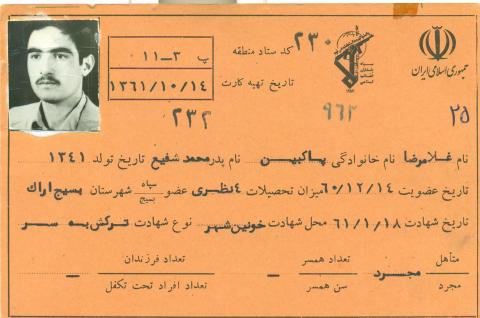 جمهوری اسلامی ایران
پ ۳ــ۱۱
۱۳۶۱/۱۰/۱۴
کد ستاد منطقه ۲۳۰
تاریخ تهیه کارت
۲۳۲
۹۶۲
۲۵
نام غلامرضا نام خانوادگی پاکبین نام پدر محمد شفیع تاریخ تولد ۱۳۴۱
تاریخ عضویت ۶۰/۱۲/۱۴ میزان تحصیلات ۴ نظری عضو سپاه بسیج شهرستان بسیج اراک
تاریخ شهادت ۶۱/۱/۱۸ محل شهادت خونین شهر نوع شهادت ترکش به سر
متأهل مجرد مجرد تعداد همسر سن همسر ــ تعداد فرزندان تعداد افراد تحت تکفل ــ